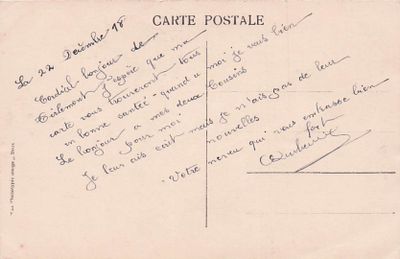 CARTE POSTALE
Le 22 Décembre 18
Cordial bonjour de
Tirlemont j'espère que ma
carte vous trouveront tous
en bonne santée quand a moi je vais bien
Le bonjour a mes deux Cousins
pour moi
Je leur ais écrit mais je n'ais pas de leur
nouvelles
Votre neveu qui vous embrasse bien
fort